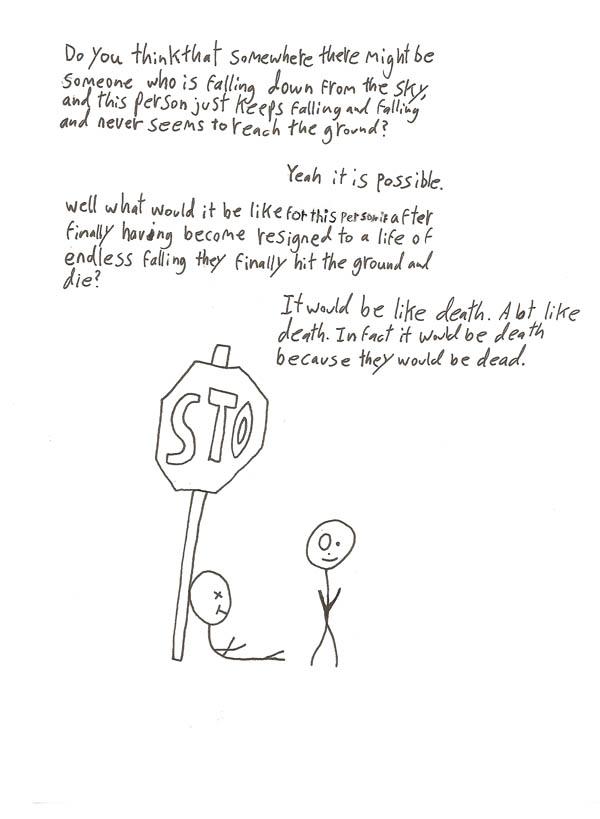 Do you think that somewhere there might be
someone who is falling down from the sky,
and this person just keeps falling and falling
and never seems to reach the ground?
Yeah it is possible.
well what would it be like for this person if after
finally having become resigned to a life of
endless falling they finally hit the ground and
die?
It would be like death. A lot like
death. In fact it would be death
because they would be dead.
STO